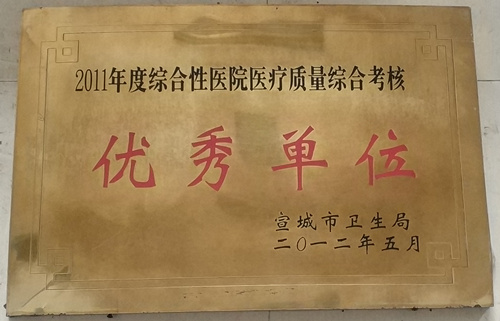 2011年度综合性医院医疗质量综合考核
优秀单位
宣城市卫生局
二〇一二年五月